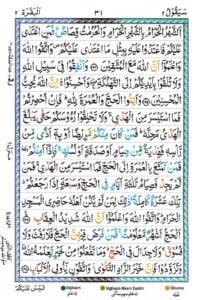 اَلْبَقَرَة ٢ ٣١ سَيَقُوْلُ ٢
اَلشَّهْرُ الْحَرَامُ بِالشَّهْرِ الْحَرَامِ وَالْحُرُمٰتُ قِصَاصٌ فَمَنِ اعْتَدٰى
عَلَيْكُمْ فَاعْتَدُوْا عَلَيْهِ بِمِثْلِ مَا اعْتَدٰى عَلَيْكُمْ وَاتَّقُوا اللّٰهَ
وَاعْلَمُوْۤا اَنَّ اللّٰهَ مَعَ الْمُتَّقِيْنَ وَاَنْفِقُوْا فِيْ سَبِيْلِ اللّٰهِ
وَلَا تُلْقُوْا بِاَيْدِيْكُمْ اِلَى التَّهْلُكَةِ وَاَحْسِنُوْا اِنَّ اللّٰهَ
يُحِبُّ الْمُحْسِنِيْنَ وَاَتِمُّوا الْحَجَّ وَالْعُمْرَةَ لِلّٰهِ فَاِنْ اُحْصِرْتُمْ
فَمَا اسْتَيْسَرَ مِنَ الْهَدْيِ وَلَا تَحْلِقُوْا رُءُوْسَكُمْ حَتّٰى يَبْلُغَ
الْهَدْيُ مَحِلَّهٗ فَمَنْ كَانَ مِنْكُمْ مَّرِيْضًا اَوْ بِهٖۤ اَذًى مِّنْ
رَّاْسِهٖ فَفِدْيَةٌ مِّنْ صِيَامٍ اَوْ صَدَقَةٍ اَوْ نُسُكٍ فَاِذَاۤ اَمِنْتُمْ
فَمَنْ تَمَتَّعَ بِالْعُمْرَةِ اِلَى الْحَجِّ فَمَا اسْتَيْسَرَ مِنَ الْهَدْيِ
فَمَنْ لَّمْ يَجِدْ فَصِيَامُ ثَلٰثَةِ اَيَّامٍ فِي الْحَجِّ وَسَبْعَةٍ اِذَا رَجَعْتُمْ
تِلْكَ عَشَرَةٌ كَامِلَةٌ ذٰلِكَ لِمَنْ لَّمْ يَكُنْ اَهْلُهٗ حَاضِرِي الْمَسْجِدِ
الْحَرَامِ وَاتَّقُوا اللّٰهَ وَاعْلَمُوْۤا اَنَّ اللّٰهَ شَدِيْدُ الْعِقَابِ
اَلْحَجُّ اَشْهُرٌ مَّعْلُوْمٰتٌ فَمَنْ فَرَضَ فِيْهِنَّ الْحَجَّ فَلَا رَفَثَ
وَلَا فُسُوْقَ وَلَا جِدَالَ فِي الْحَجِّ وَمَا تَفْعَلُوْا مِنْ خَيْرٍ يَّعْلَمْهُ اللّٰهُ
وَتَزَوَّدُوْا فَاِنَّ خَيْرَ الزَّادِ التَّقْوٰى وَاتَّقُوْنِ يٰۤاُولِي الْاَلْبَابِ
لَيْسَ عَلَيْكُمْ
Idgham
Idgham Meem Saakin
Ghunna